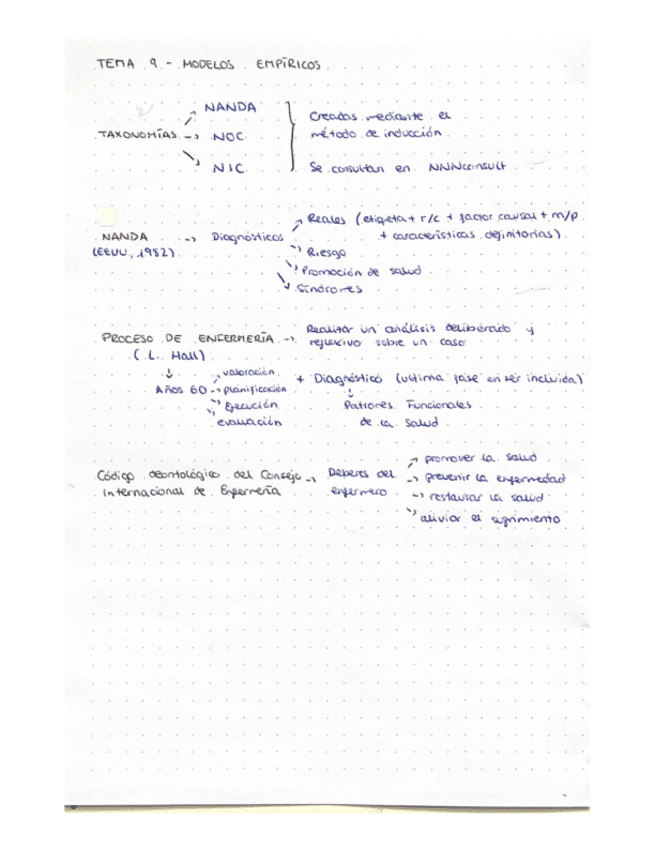 TEMA 9 - MODELOS EMPÍRICOS
TAXONOMÍAS → NANDA
→ NOC
→ NIC
Creadas mediante el
método de inducción
Se consultan en NNNconsult
NANDA → Diagnósticos
(EEUU, 1982)
→ Reales (etiqueta + r/c + factor causal + m/p
+ características definitorias)
→ Riesgo
→ Promoción de salud
→ Síndromes
PROCESO DE ENFERMERÍA → Realizar un análisis deliberado y
(L. Hall) reflexivo sobre un caso
↓
Años 60 → valoración
→ planificación
→ Ejecución
→ evaluación
+ Diagnóstico (última fase en ser incluida)
↓
Patrones Funcionales
de la salud
Código deontológico del Consejo → Deberes del
Internacional de Enfermería enfermero
→ promover la salud
→ prevenir la enfermedad
→ restaurar la salud
→ aliviar el sufrimiento